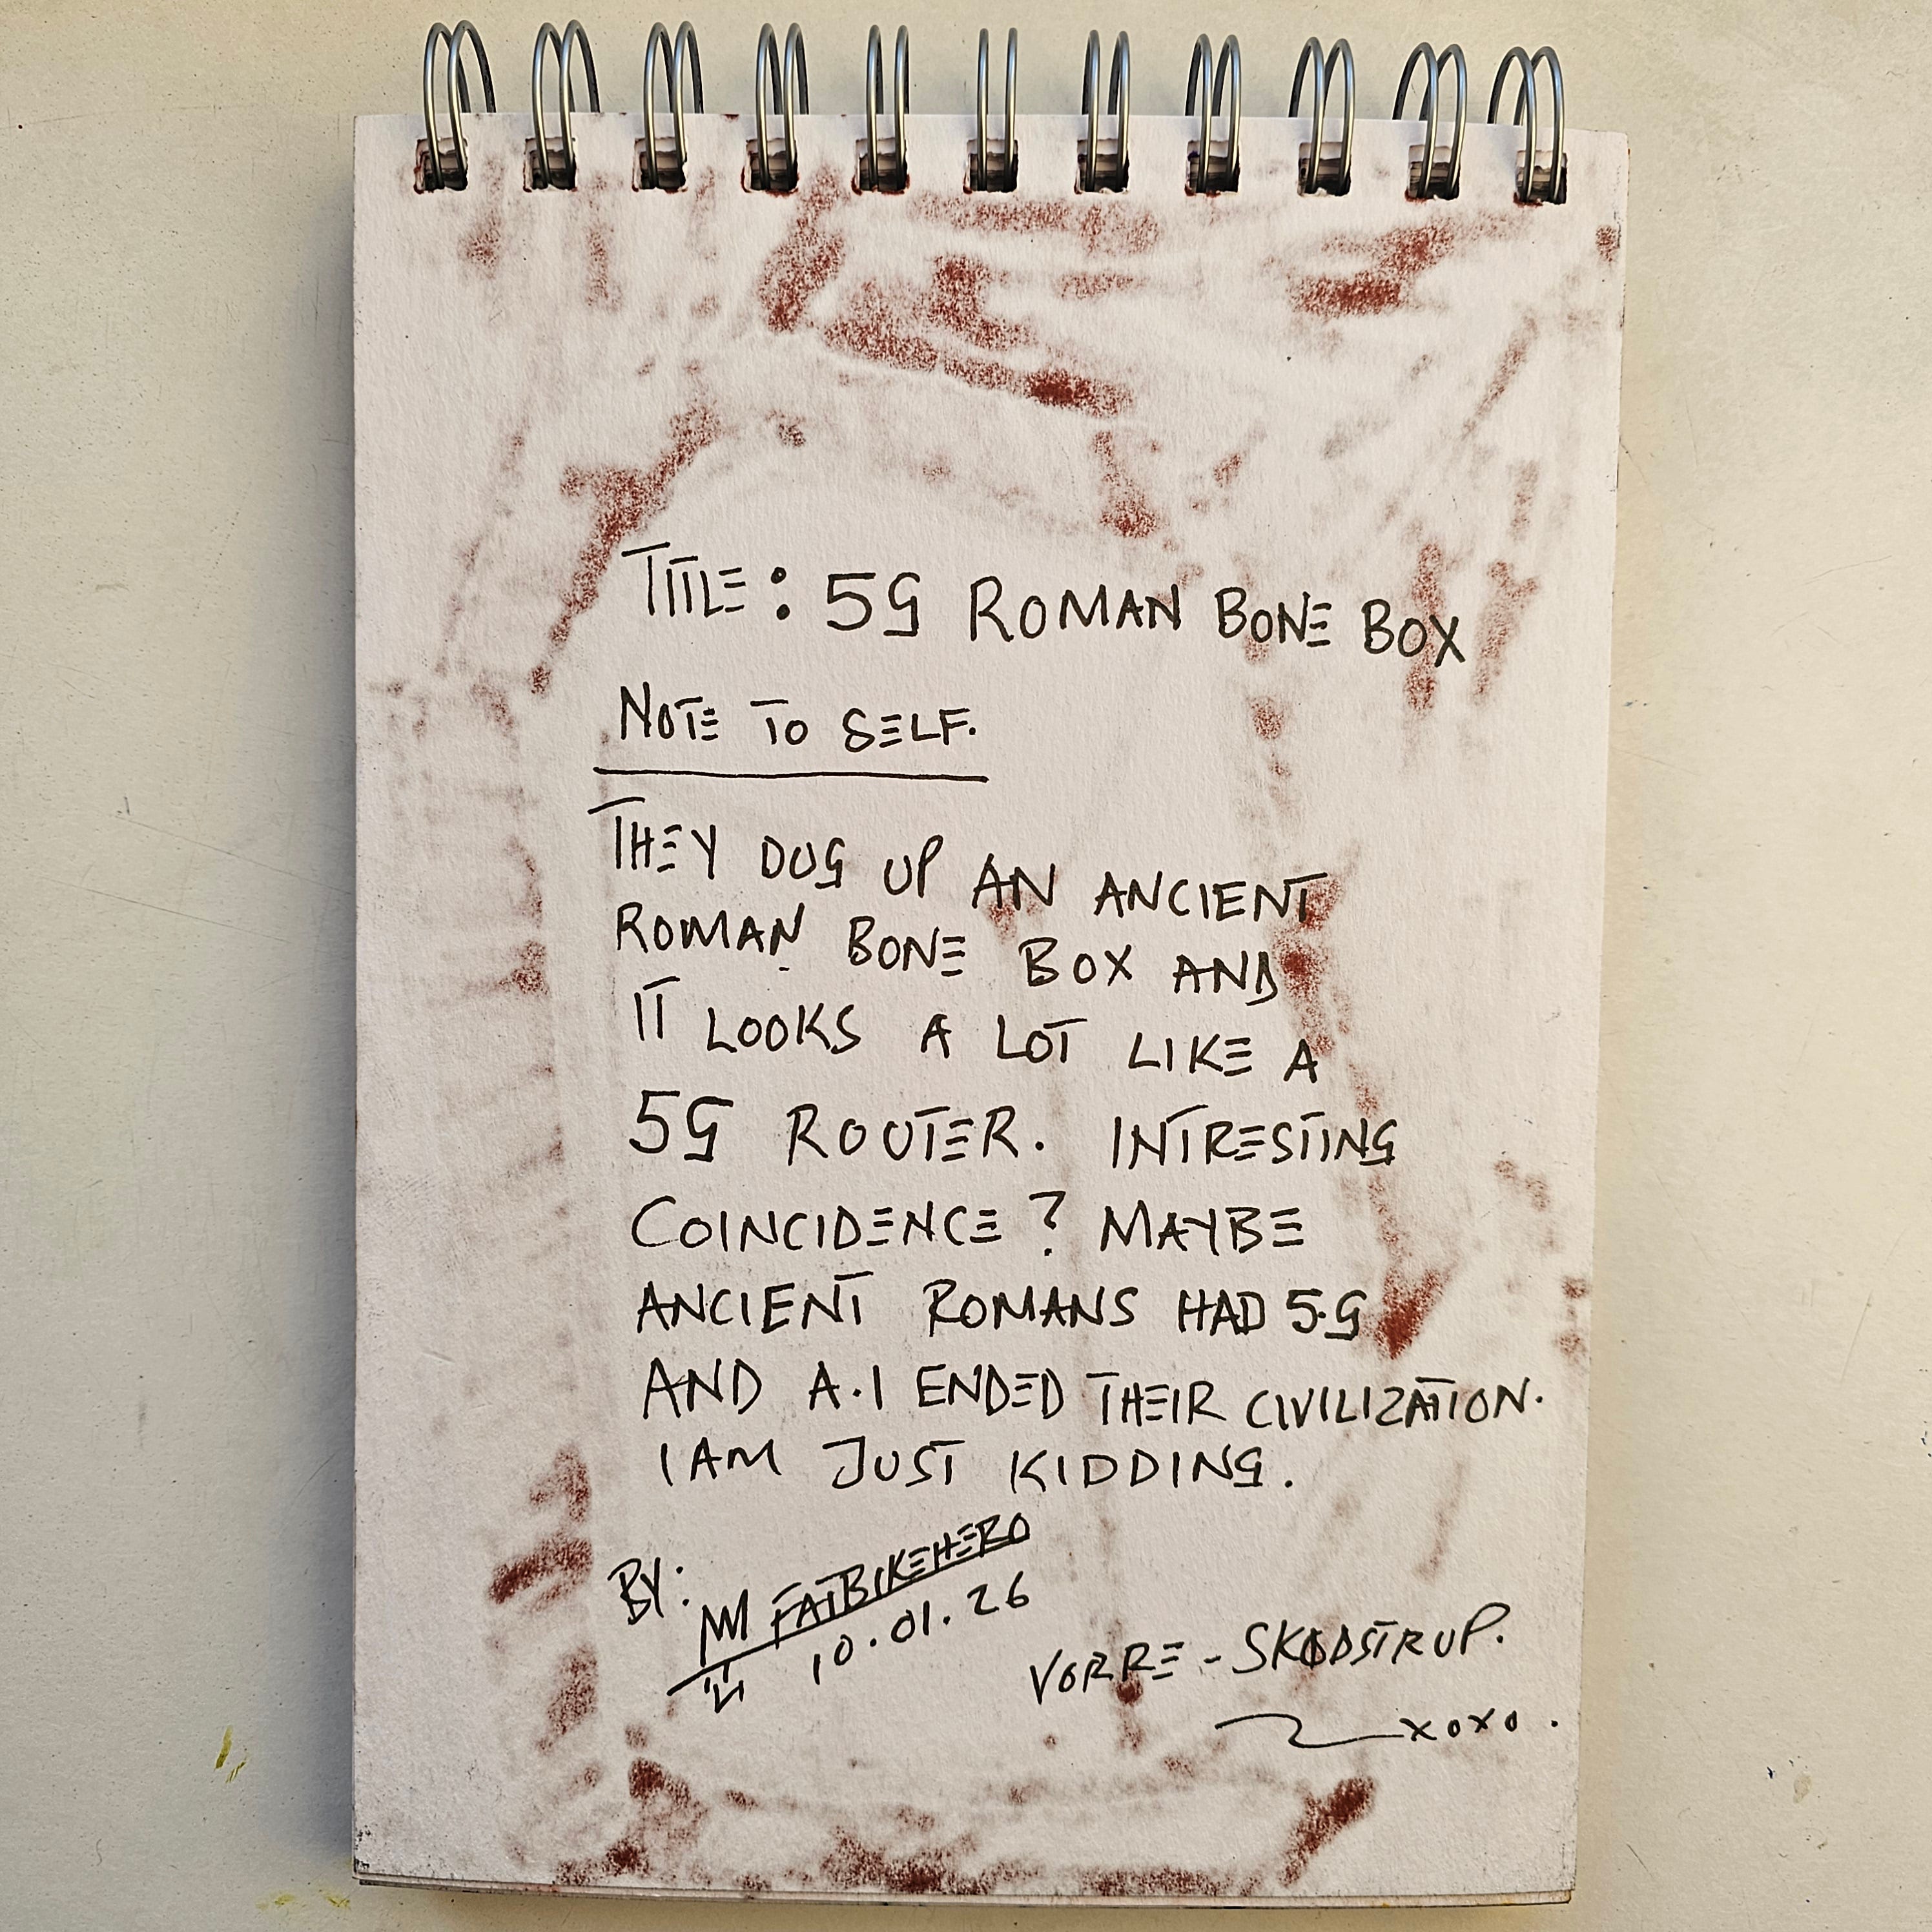 TITLE: 5G ROMAN BONE BOX
NOTE TO SELF.
THEY DUG UP AN ANCIENT
ROMAN BONE BOX AND
IT LOOKS A LOT LIKE A
5G ROUTER. INTRESTING
COINCIDENCE? MAYBE
ANCIENT ROMANS HAD 5.G
AND A.I ENDED THEIR CIVILIZATION.
I AM JUST KIDDING.
BY: FATBIKEHERO
10.01.26
VORRE - SKØDSTRUP.
xoxo.